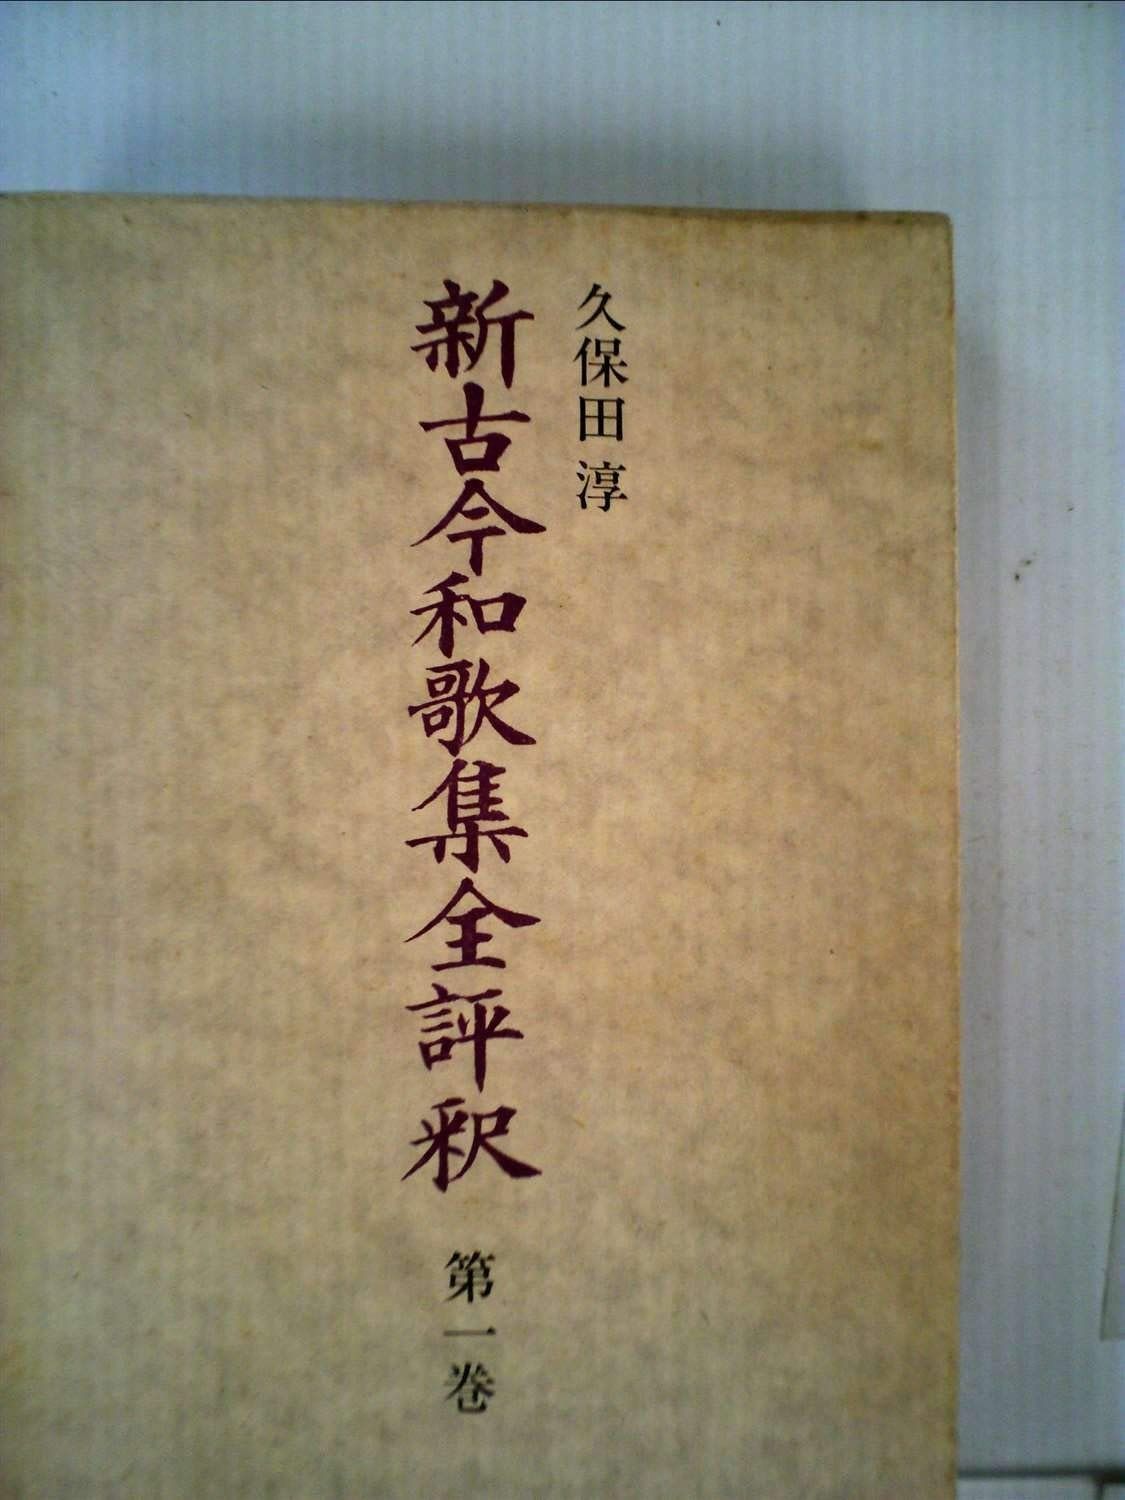 久保田 淳
新古今和歌集全評釈 第一巻